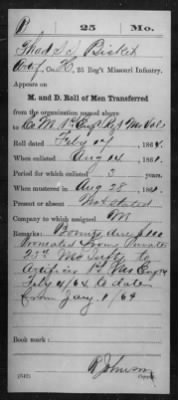 B 25 Mo.
Thad. S. Bisket
Artif., Co. K, 25 Reg't Missouri Infantry.
Appears on
M. and D. Roll of Men Transferred
from the organization named above
to Co. M 1st Eng'r Reg Mo Vols
Roll dated Feby 17, 1864.
When enlisted Aug 14, 1861.
Period for which enlisted 3 years.
When mustered in Aug 28, 1861.
Present or absent Not stated
Company to which assigned M
Remarks: Bounty due $100
Promoted from Private
25th Mo Infty to
Artificer 1st Mo Eng
Feby 4/64 to date
from Jany 1/64
Book mark:
R Johnson
(642) Copyist.